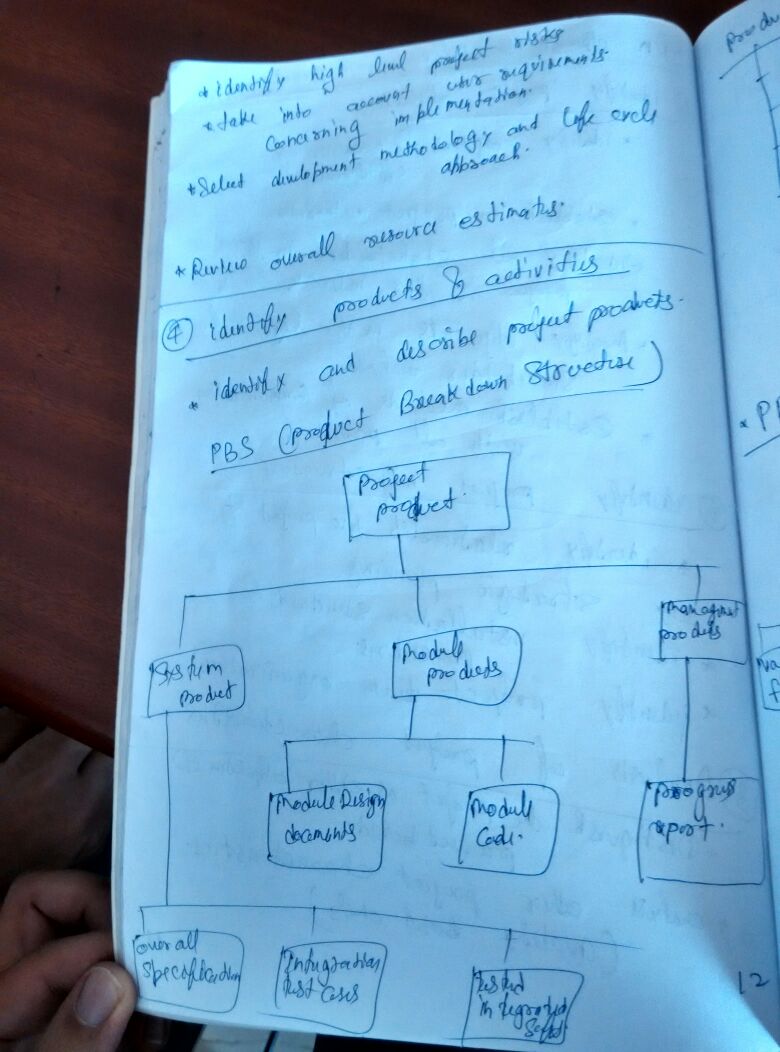 * identify high level project risks
* take into account user requirements
concerning implementation.
* Select development methodology and life cycle
approach.
* Review overall resource estimates.
④ identify products & activities
* identify and describe project products.
PBS (Product Breakdown Structure)
Project
product.
System
product
Module
products
Managment
products
Module Design
documents.
Module
Code.
progress
report.
overall
specification
Integration
test cases
Tested
integrated
12